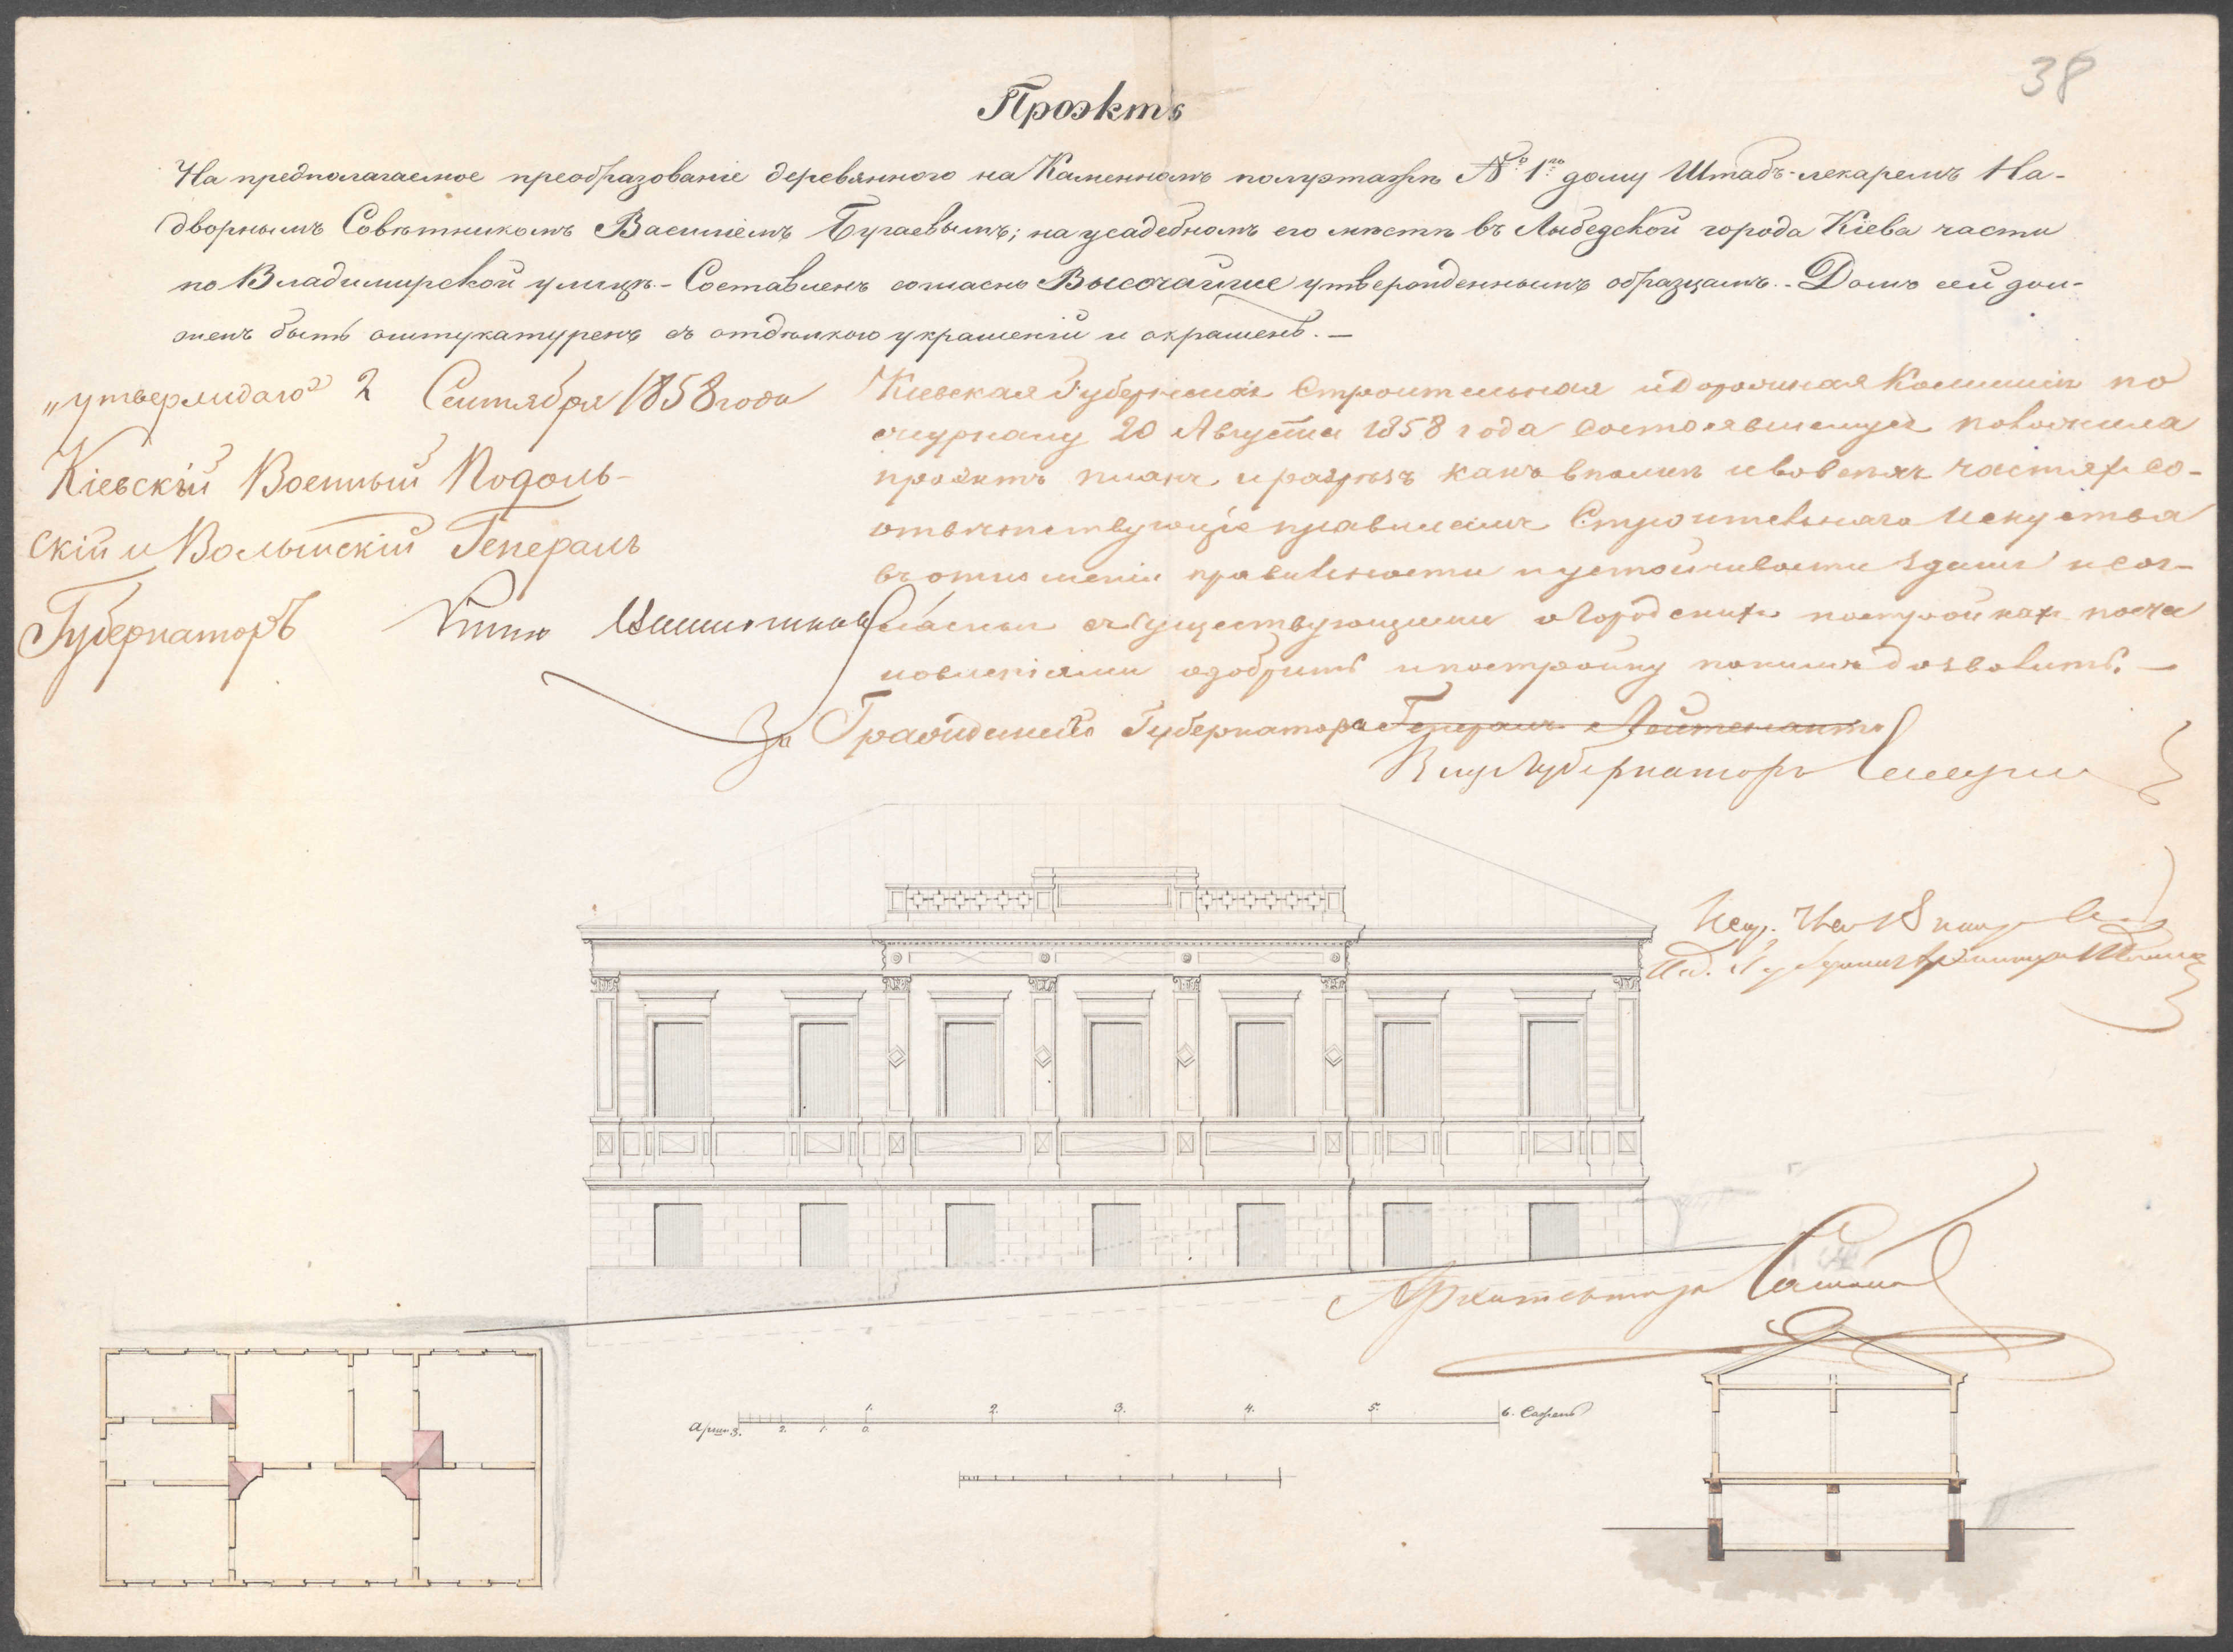 38
Проэктъ
На предполагаемое преобразованіе деревянного на Каменномъ полуэтажѣ № 1го дому Штабъ-лекаремъ На-
дворнымъ Совѣтникомъ Василіемъ Бугаевымъ; на усадебномъ его мѣстѣ въ Лыбедской города Кіева части
по Владимирской улицѣ. - Составленъ согласно Высочайше утвержденнымъ образцамъ. - Домъ сей дол-
женъ быть оштукатуренъ съ отдѣлкою украшеній и окрашенъ. —
„утверждаю" 2 Сентября 1858 года
Кіевскій Военный Подоль-
скій и Волынскій Генералъ
Губернаторъ Князь
Кіевская Губернская Строительная и дорожная Коммисія по
журналу 20 Августа 1858 года состоявшемуся положила
проэктъ планъ и разрѣзъ какъ вполнѣ и во всѣхъ частях со-
отвѣтствующіе правиламъ Строительнаго Искуства
въ отношеніи правильности и устойчивости зданія и сог-
ласныя съ существующими о Городских постройкахъ поста
новленіями одобрить и постройку по нимъ дозволить. —
За Гражданскаго Губернатора Генералъ Лейтенантъ
Вице Губернаторъ
Архитекторъ
Арши. 3. 2. 1. 0. 1. 2. 3. 4. 5. 6. Сажень